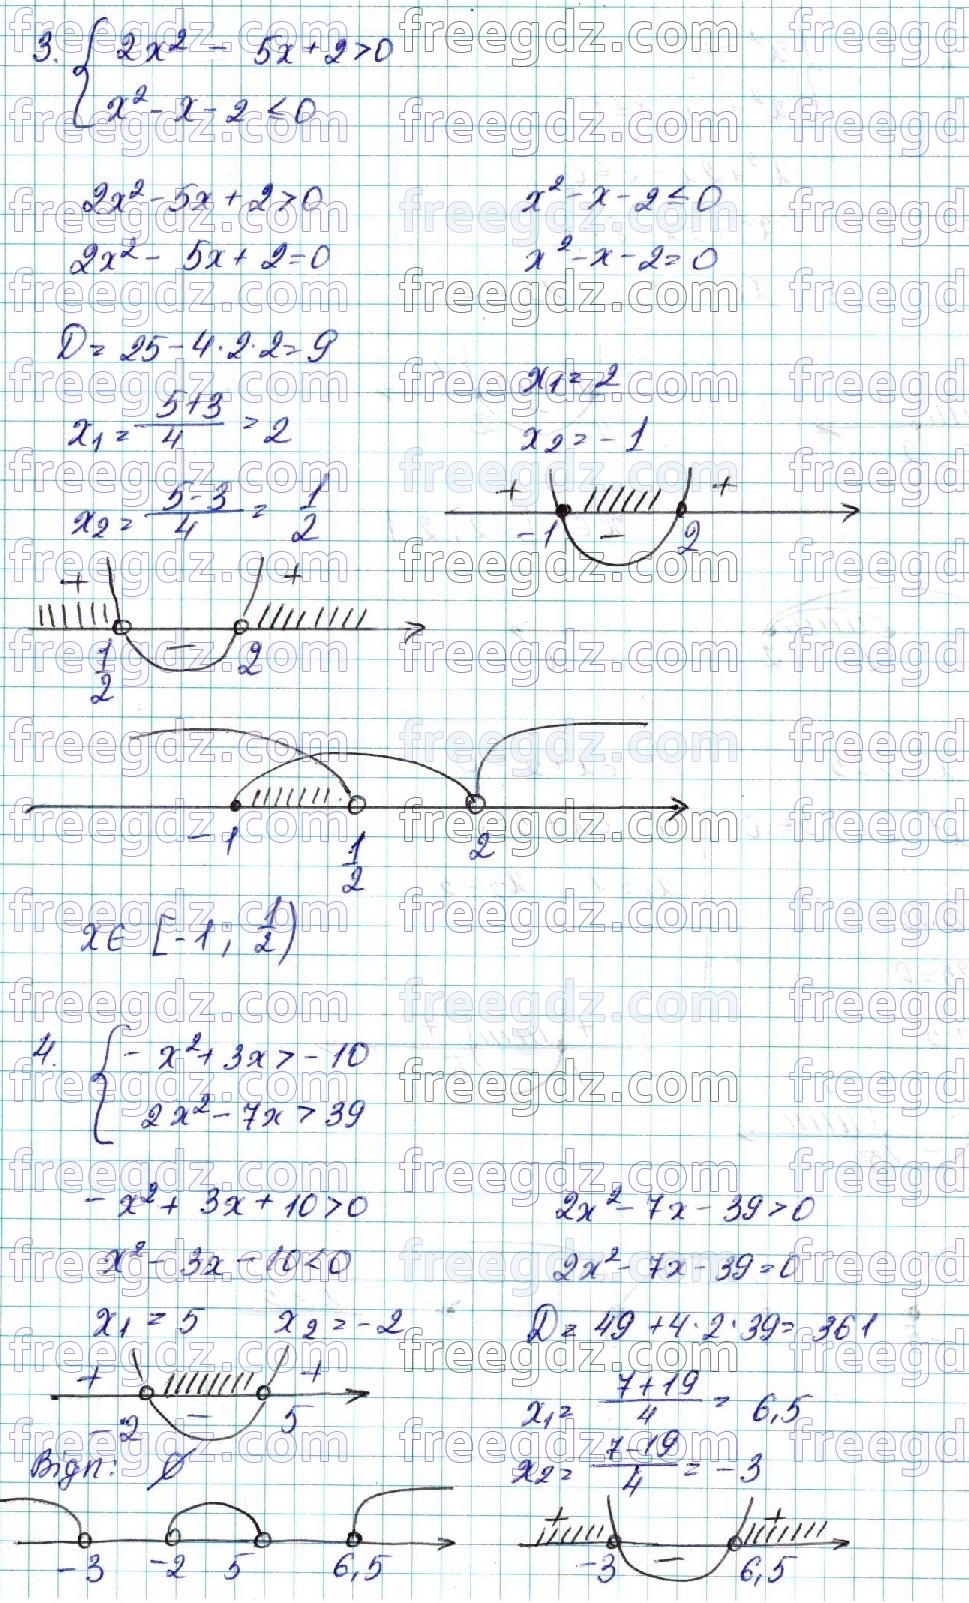 3. { 2x² - 5x + 2 > 0
x² - x - 2 ≤ 0
2x² - 5x + 2 > 0
2x² - 5x + 2 = 0
D = 25 - 4·2·2 = 9
x₁ = (5+3)/4 = 2
x₂ = (5-3)/4 = 1/2
+ - +
1/2 2
x² - x - 2 ≤ 0
x² - x - 2 = 0
x₁ = 2
x₂ = -1
+ - +
-1 2
-1 1/2 2
x ∈ [-1; 1/2)
4. { -x² + 3x > -10
2x² - 7x > 39
-x² + 3x + 10 > 0
x² - 3x - 10 < 0
x₁ = 5 x₂ = -2
+ - +
-2 5
Відп: ∅
-3 -2 5 6,5
2x² - 7x - 39 > 0
2x² - 7x - 39 = 0
D = 49 + 4·2·39 = 361
x₁ = (7+19)/4 = 6,5
x₂ = (7-19)/4 = -3
+ - +
-3 6,5
freegdz.com